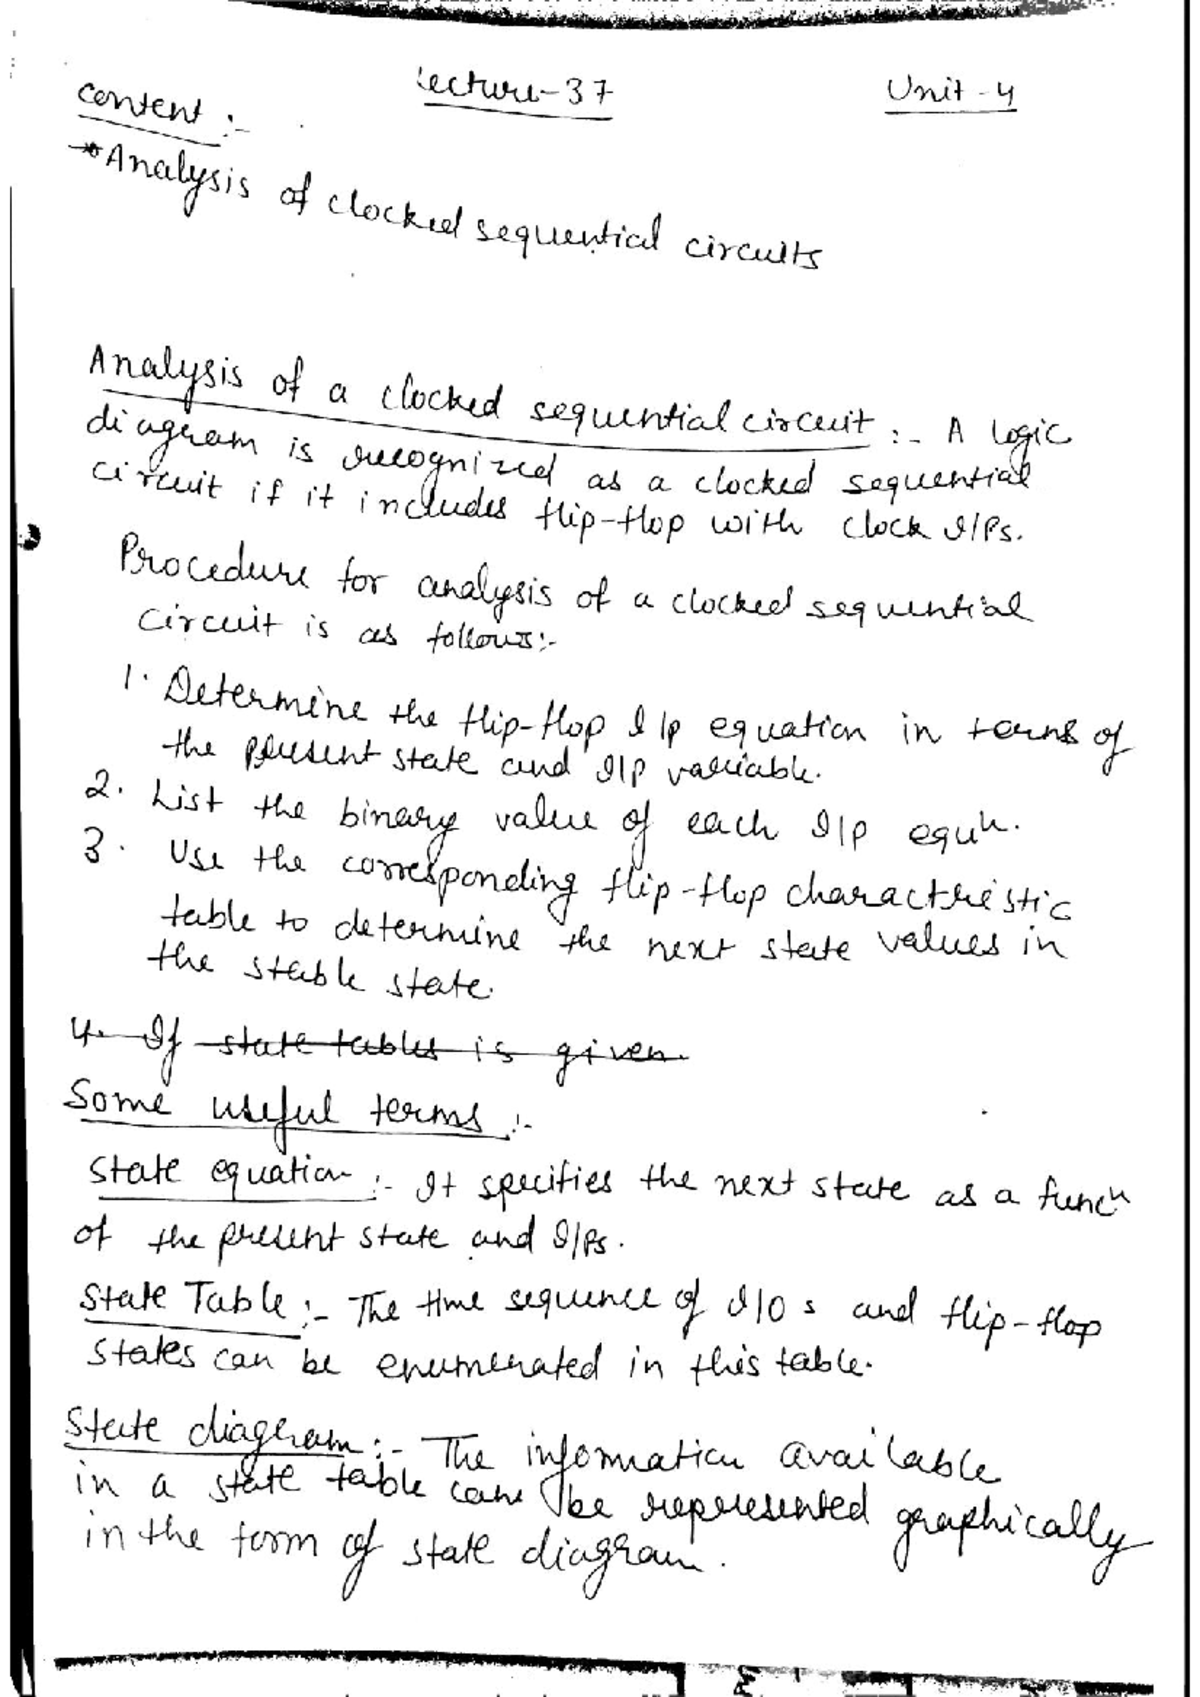 Lecture-37
Unit-4
Content :-
*Analysis of clocked sequential circuits
Analysis of a clocked sequential circuit :- A logic
diagram is recognized as a clocked sequential
circuit if it includes flip-flop with clock I/Ps.
Procedure for analysis of a clocked sequential
circuit is as follows:-
1. Determine the flip-flop I/p equation in terms of
the present state and I/P variable.
2. List the binary value of each I/p equn.
3. Use the corresponding flip-flop characteristic
table to determine the next state values in
the stable state.
4. If state tables is given.
Some useful terms :-
State equation :- It specifies the next state as a funcn
of the present state and I/Ps.
State Table :- The time sequence of I/O s and flip-flop
states can be enumerated in this table.
State diagram :- The information available
in a state table can be represented graphically
in the form of state diagram.